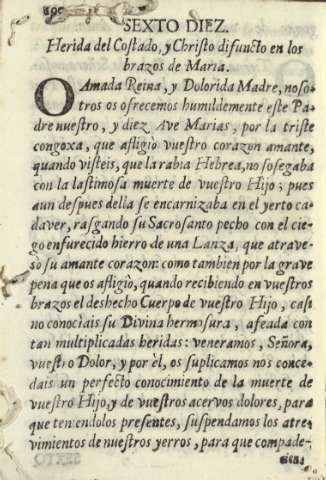 SEXTO DIEZ.
Herida del Costado, y Christo difuncto en los
brazos de Maria.
O Amada Reina, y Dolorida Madre, noso-
tros os ofrecemos humildemente este Pa-
dre nuestro, y diez Ave Marias, por la triste
congoxa, que afligiò vuestro corazon amante,
quando visteis, que la rabia Hebrea, no sosegaba
con la lastimosa muerte de vuestro Hijo; pues
aun despues della se encarnizaba en el yerto ca-
daver, rasgando su Sacrosanto pecho con el cie-
go enfurecido hierro de una Lanza, que atrave-
sò su amante corazon: como tambien por la grave
pena que os afligiò, quando recibiendo en vuestros
brazos el deshecho Cuerpo de vuestro Hijo, casi
no conociais su Divina hermosura, afeada con
tan multiplicadas heridas: veneramos, Señora,
vuestro Dolor, y por èl, os suplicamos nos conce-
dais un perfecto conocimiento de la muerte de
vuestro Hijo, y de vuestros acervos dolores, para
que teniendolos presentes, suspendamos los atre-
vimientos de nuestros yerros, para que compade-